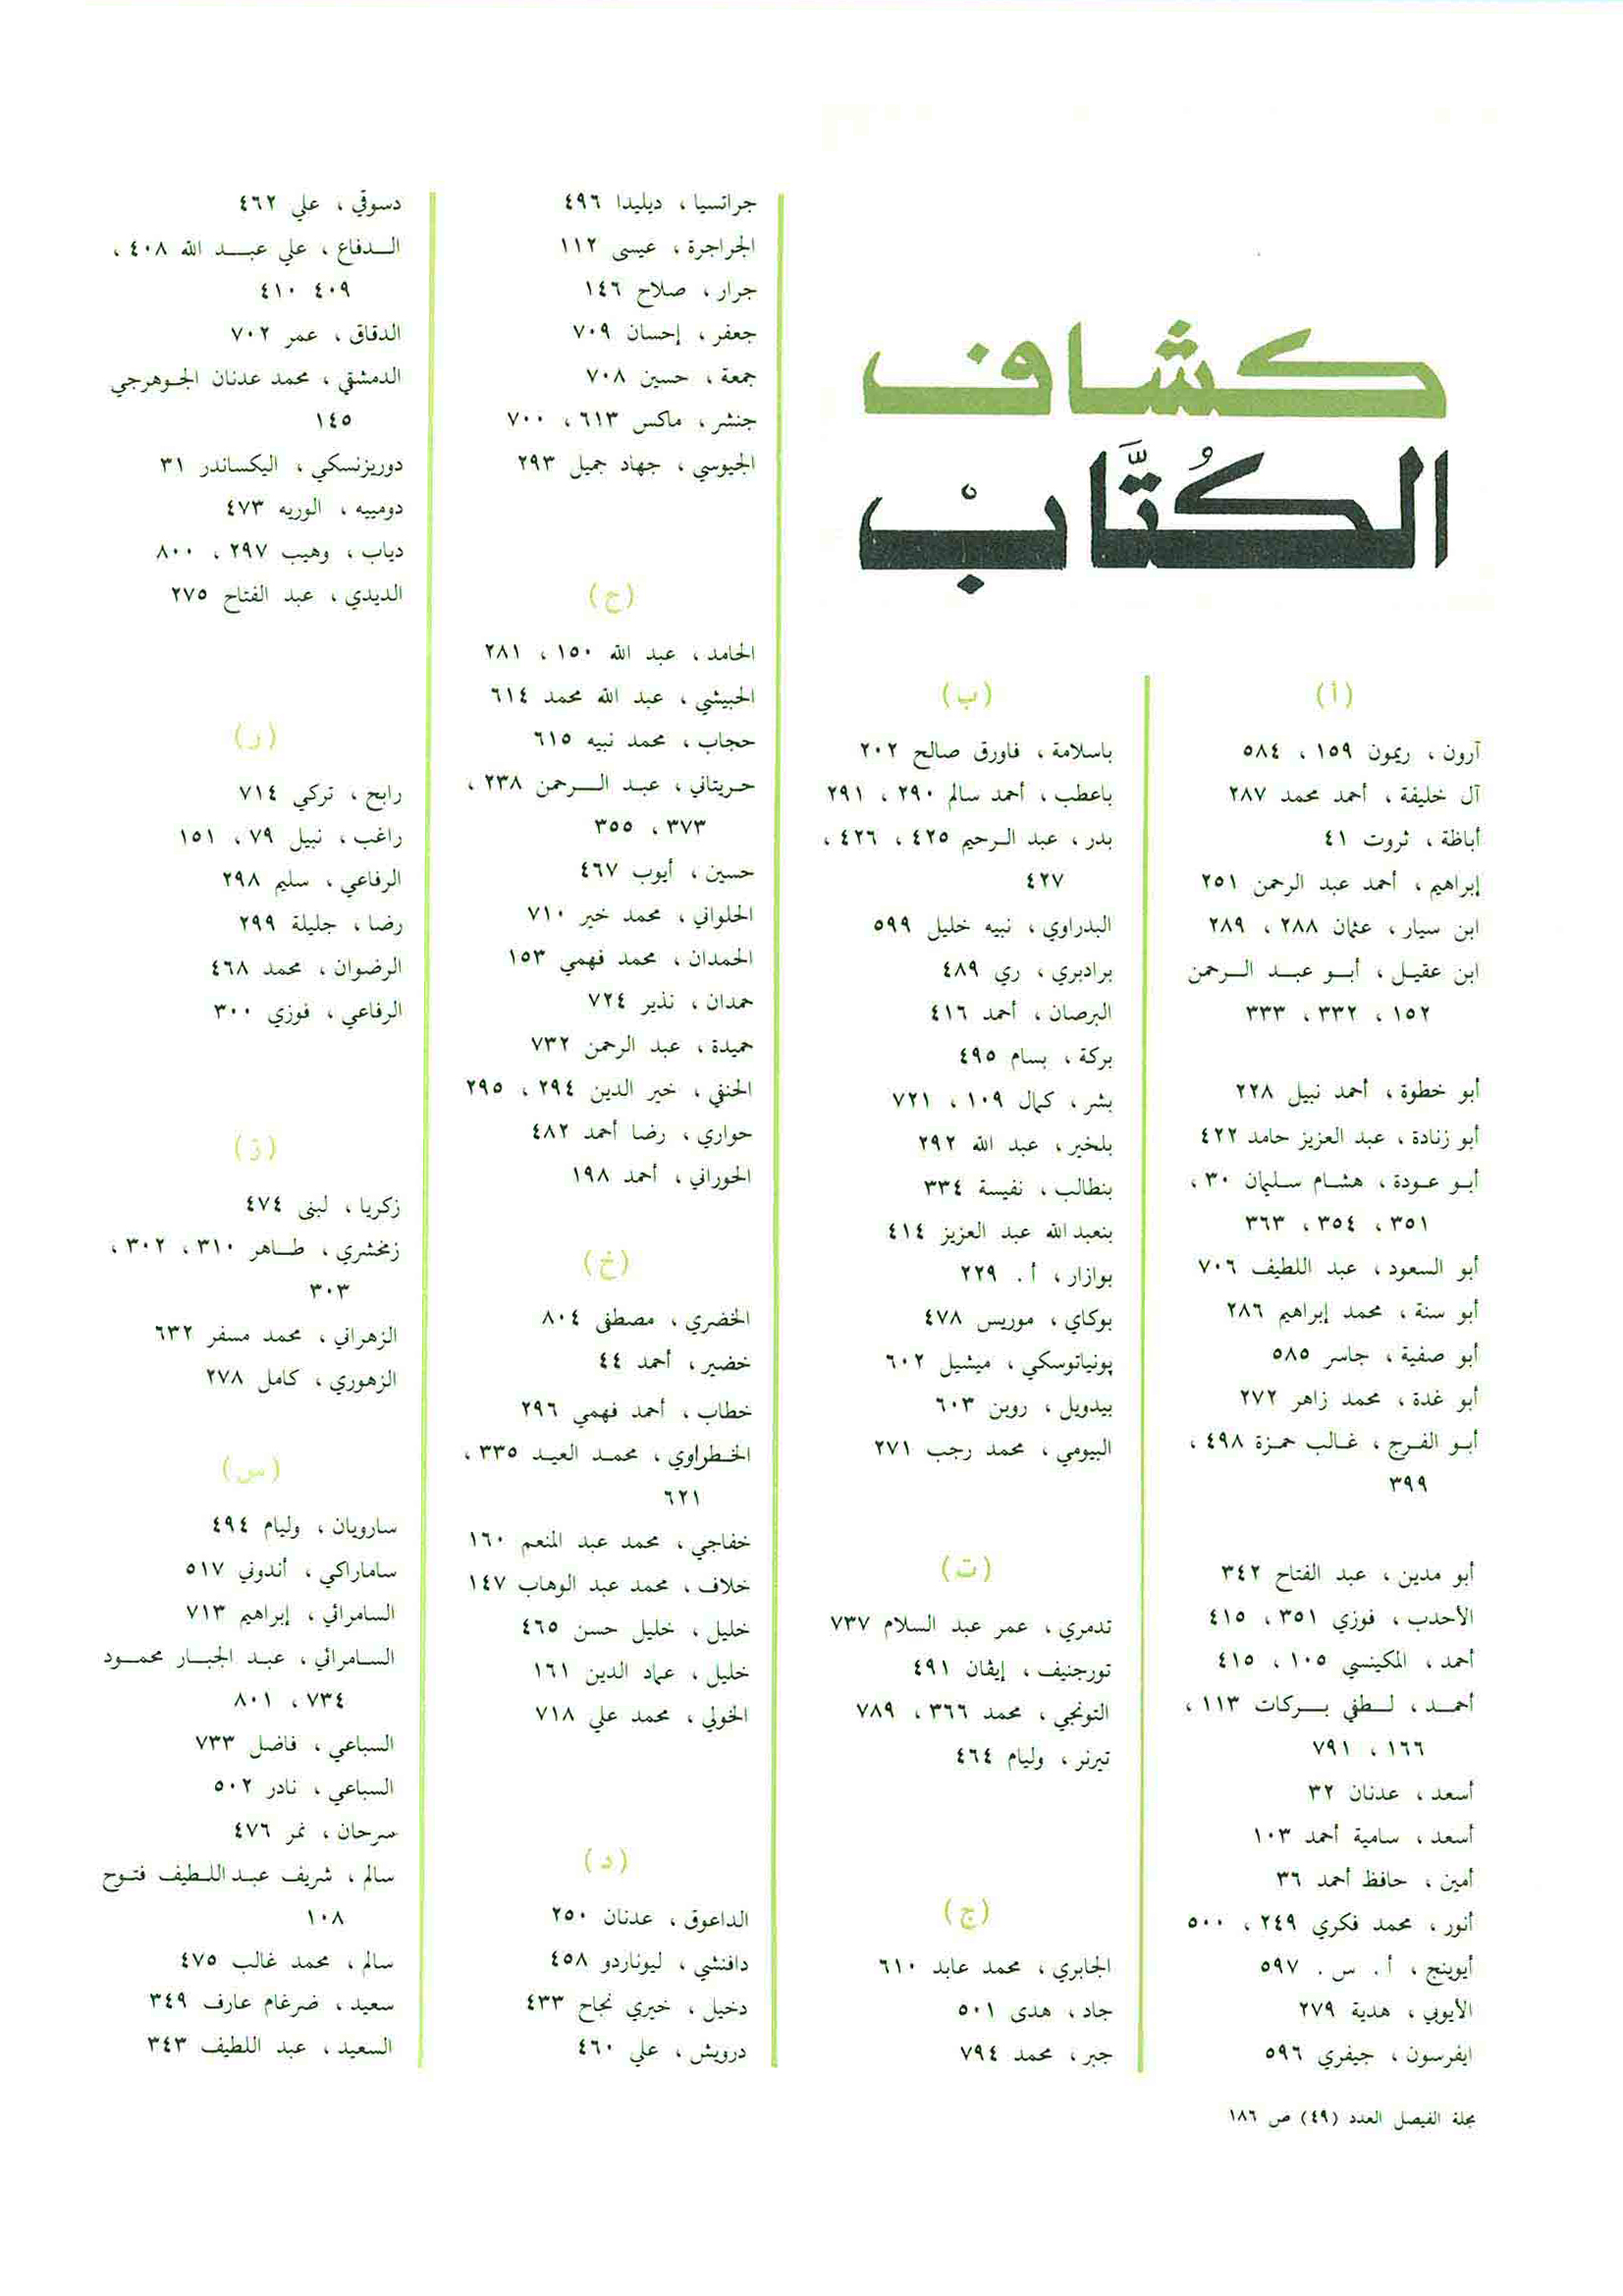 كشاف
الكُتَّابْ
(أ)
آرون ، ريمون ١٥٩ ، ٥٨٤
آل خليفة ، أحمد محمد ٢٨٧
أباظة ، ثروت ٤١
إبراهيم ، أحمد عبد الرحمن ٢٥١
ابن سيار ، عثمان ٢٨٨ ، ٢٨٩
ابن عقيل ، أبو عبد الرحمن
١٥٢ ، ٣٣٢ ، ٣٣٣
أبو خطوة ، أحمد نبيل ٢٢٨
أبو زنادة ، عبد العزيز حامد ٤٢٢
أبو عودة ، هشام سليمان ٣٠ ،
٣٥١ ، ٣٥٤ ، ٣٦٣
أبو السعود ، عبد اللطيف ٧٠٦
أبو سنة ، محمد إبراهيم ٢٨٦
أبو صفية ، جاسر ٥٨٥
أبو غدة ، محمد زاهر ٢٧٢
أبو الفرج ، غالب حمزة ٤٩٨ ،
٣٩٩
أبو مدين ، عبد الفتاح ٣٤٢
الأحدب ، فوزي ٣٥١ ، ٤١٥
أحمد ، المكينسي ١٠٥ ، ٤١٥
أحمد ، لطفي بركات ١١٣ ،
١٦٦ ، ٧٩١
أسعد ، عدنان ٣٢
أسعد ، سامية أحمد ١٠٣
أمين ، حافظ أحمد ٣٦
أنور ، محمد فكري ٢٤٩ ، ٥٠٠
أيوينج ، أ . س . ٥٩٧
الأيوبي ، هدية ٢٧٩
ايفرسون ، جيفري ٥٩٦
(ب)
باسلامة ، فاورق صالح ٢٠٢
باعطب ، أحمد سالم ٢٩٠ ، ٢٩١
بدر ، عبد الرحيم ٤٢٥ ، ٤٢٦ ،
٤٢٧
البدراوي ، نبيه خليل ٥٩٩
برادبري ، ري ٤٨٩
البرصان ، أحمد ٤١٦
بركة ، بسام ٤٩٥
بشر ، كمال ١٠٩ ، ٧٢١
بلخير ، عبد الله ٢٩٢
بنطالب ، نفيسة ٣٣٤
بنعبد الله عبد العزيز ٤١٤
بوازار ، أ . ٢٢٩
بوكاي ، موريس ٤٧٨
پونياتوسكي ، ميشيل ٦٠٢
بيدويل ، روبن ٦٠٣
البيومي ، محمد رجب ٢٧١
(ت)
تدمري ، عمر عبد السلام ٧٣٧
تورجنيف ، إيڤان ٤٩١
التونجي ، محمد ٣٦٦ ، ٧٨٩
تيرنر ، وليام ٤٦٤
(ج)
الجابري ، محمد عابد ٦١٠
جاد ، هدى ٥٠١
جبر ، محمد ٧٩٤
جراتسيا ، ديليدا ٤٩٦
الجراجرة ، عيسى ١١٢
جرار ، صلاح ١٤٦
جعفر ، إحسان ٧٠٩
جمعة ، حسين ٧٠٨
جنشر ، ماكس ٦١٣ ، ٧٠٠
الجيوسي ، جهاد جميل ٢٩٣
(ح)
الحامد ، عبد الله ١٥٠ ، ٢٨١
الحبيشي ، عبد الله محمد ٦١٤
حجاب ، محمد نبيه ٦١٥
حريتاني ، عبد الرحمن ٢٣٨ ،
٣٧٣ ، ٣٥٥
حسين ، أيوب ٤٦٧
الحلواني ، محمد خير ٧١٠
الحمدان ، محمد فهمي ١٥٣
حمدان ، نذير ٧٢٤
حميدة ، عبد الرحمن ٧٣٢
الحنفي ، خير الدين ٢٩٤ ، ٢٩٥
حواري ، رضا أحمد ٤٨٢
الحوراني ، أحمد ١٩٨
(خ)
الخضري ، مصطفى ٨٠٤
خضير ، أحمد ٤٤
خطاب ، أحمد فهمي ٢٩٦
الخطراوي ، محمد العيد ٣٣٥ ،
٦٢١
خفاجي ، محمد عبد المنعم ١٦٠
خلاف ، محمد عبد الوهاب ١٤٧
خليل ، خليل حسن ٤٦٥
خليل ، عماد الدين ١٦١
الخولي ، محمد علي ٧١٨
(د)
الداعوق ، عدنان ٢٥٠
دافنشي ، ليوناردو ٤٥٨
دخيل ، خيري نجاح ٤٣٣
درويش ، علي ٤٦٠
دسوقي ، علي ٤٦٢
الدفاع ، علي عبد الله ٤٠٨ ،
٤٠٩ ٤١٠
الدقاق ، عمر ٧٠٢
الدمشقي ، محمد عدنان الجوهرجي
١٤٥
دوريزنسكي ، اليكساندر ٣١
دومييه ، الوريه ٤٧٣
دياب ، وهيب ٢٩٧ ، ٨٠٠
الديدي ، عبد الفتاح ٢٧٥
(ر)
رابح ، تركي ٧١٤
راغب ، نبيل ٧٩ ، ١٥١
الرفاعي ، سليم ٢٩٨
رضا ، جليلة ٢٩٩
الرضوان ، محمد ٤٦٨
الرفاعي ، فوزي ٣٠٠
(ز)
زكريا ، لبنى ٤٧٤
زمخشري ، طاهر ٣١٠ ، ٣٠٢ ،
٣٠٣
الزهراني ، محمد مسفر ٦٣٢
الزهوري ، كامل ٢٧٨
(س)
سارويان ، وليام ٤٩٤
ساماراكي ، أندوني ٥١٧
السامرائي ، إبراهيم ٧١٣
السامرائي ، عبد الجبار محمود
٧٣٤ ، ٨٠١
السباعي ، فاضل ٧٣٣
السباعي ، نادر ٥٠٢
سرحان ، نمر ٤٧٦
سالم ، شريف عبد اللطيف فتوح
١٠٨
سالم ، محمد غالب ٤٧٥
سعيد ، ضرغام عارف ٣٤٩
السعيد ، عبد اللطيف ٣٤٣
مجلة الفيصل العدد (٤٩) ص ١٨٦